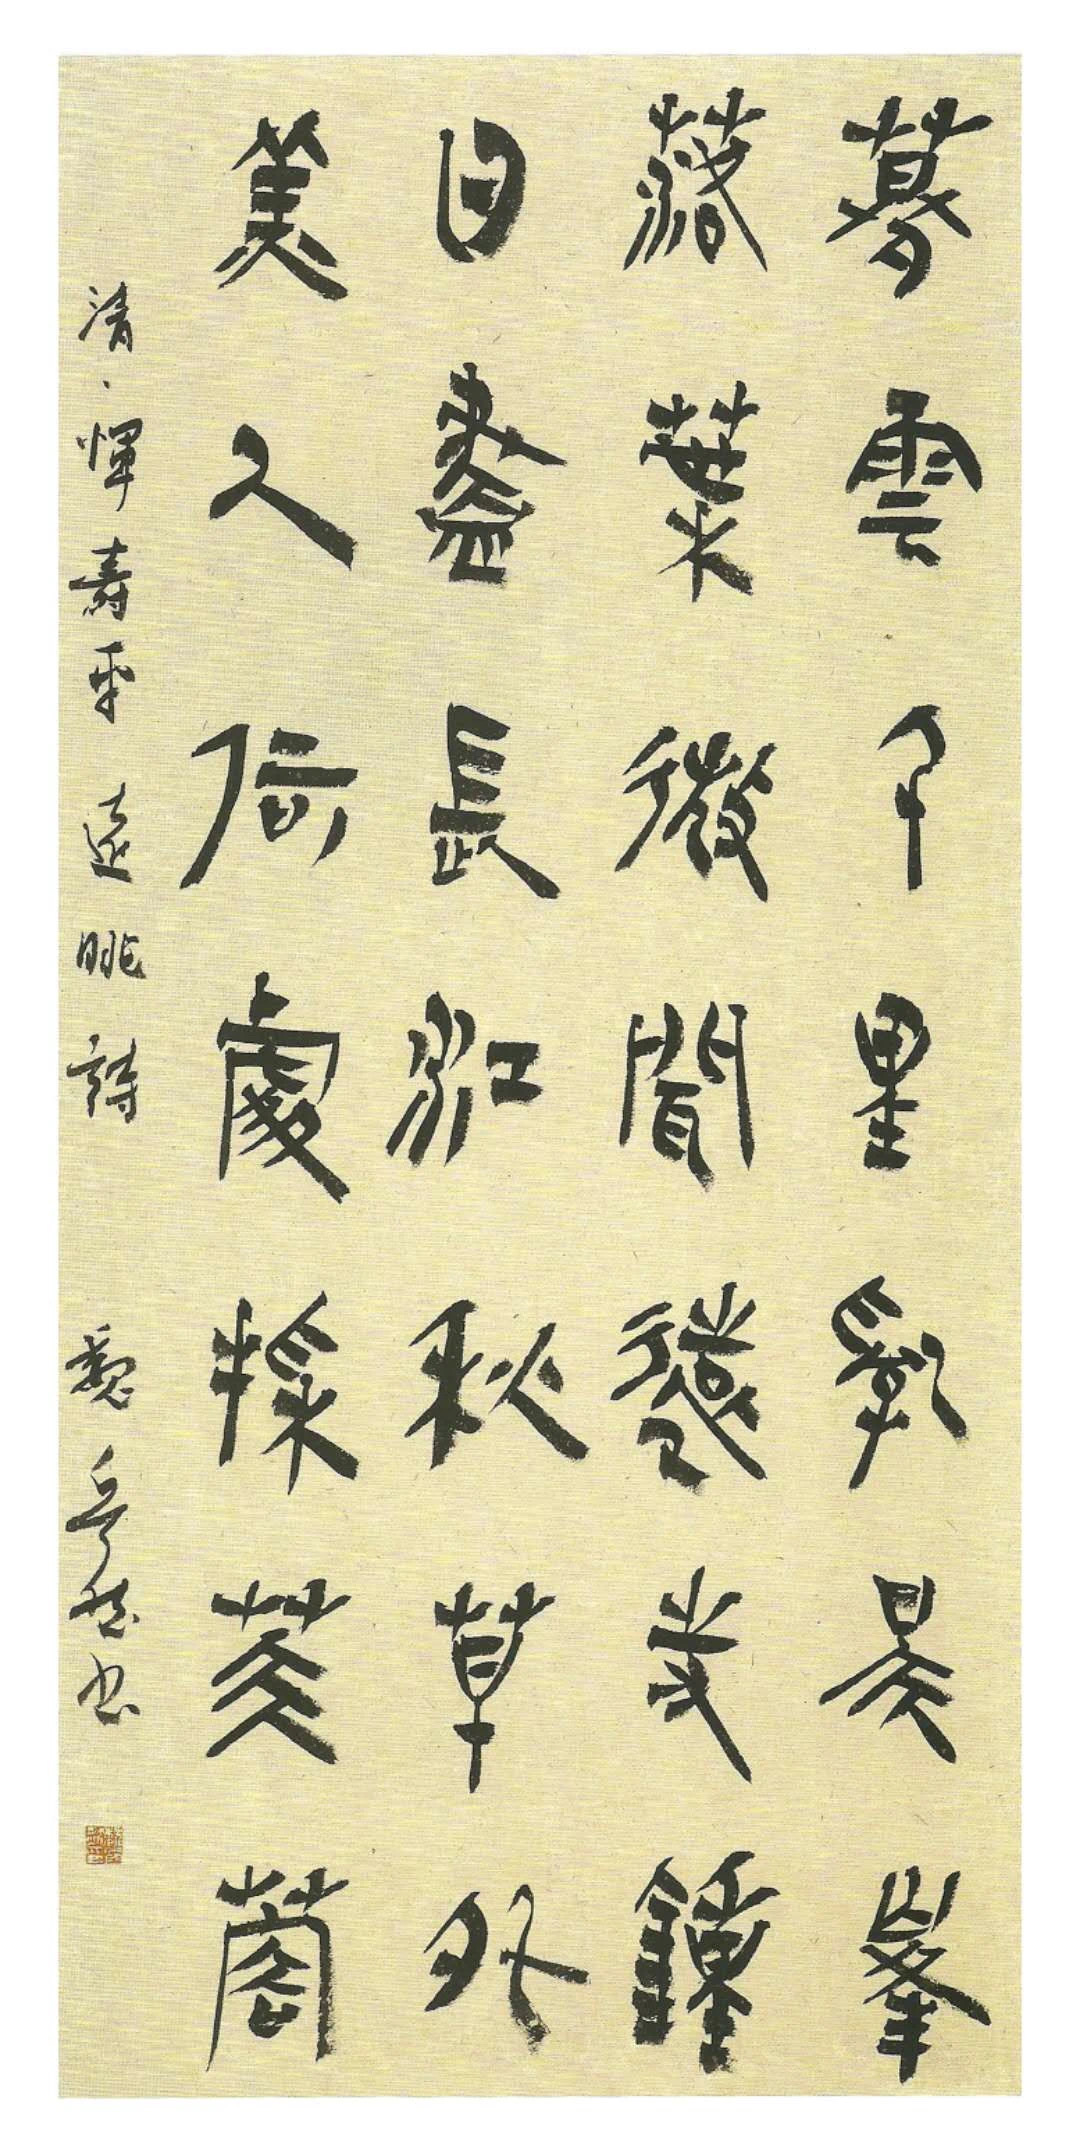 暮雲千里亂吳峯
落葉微聞遠寺鐘
目盡長江秋草外
美人何處採芙蓉
清、惲壽平遠眺詩 魏 书